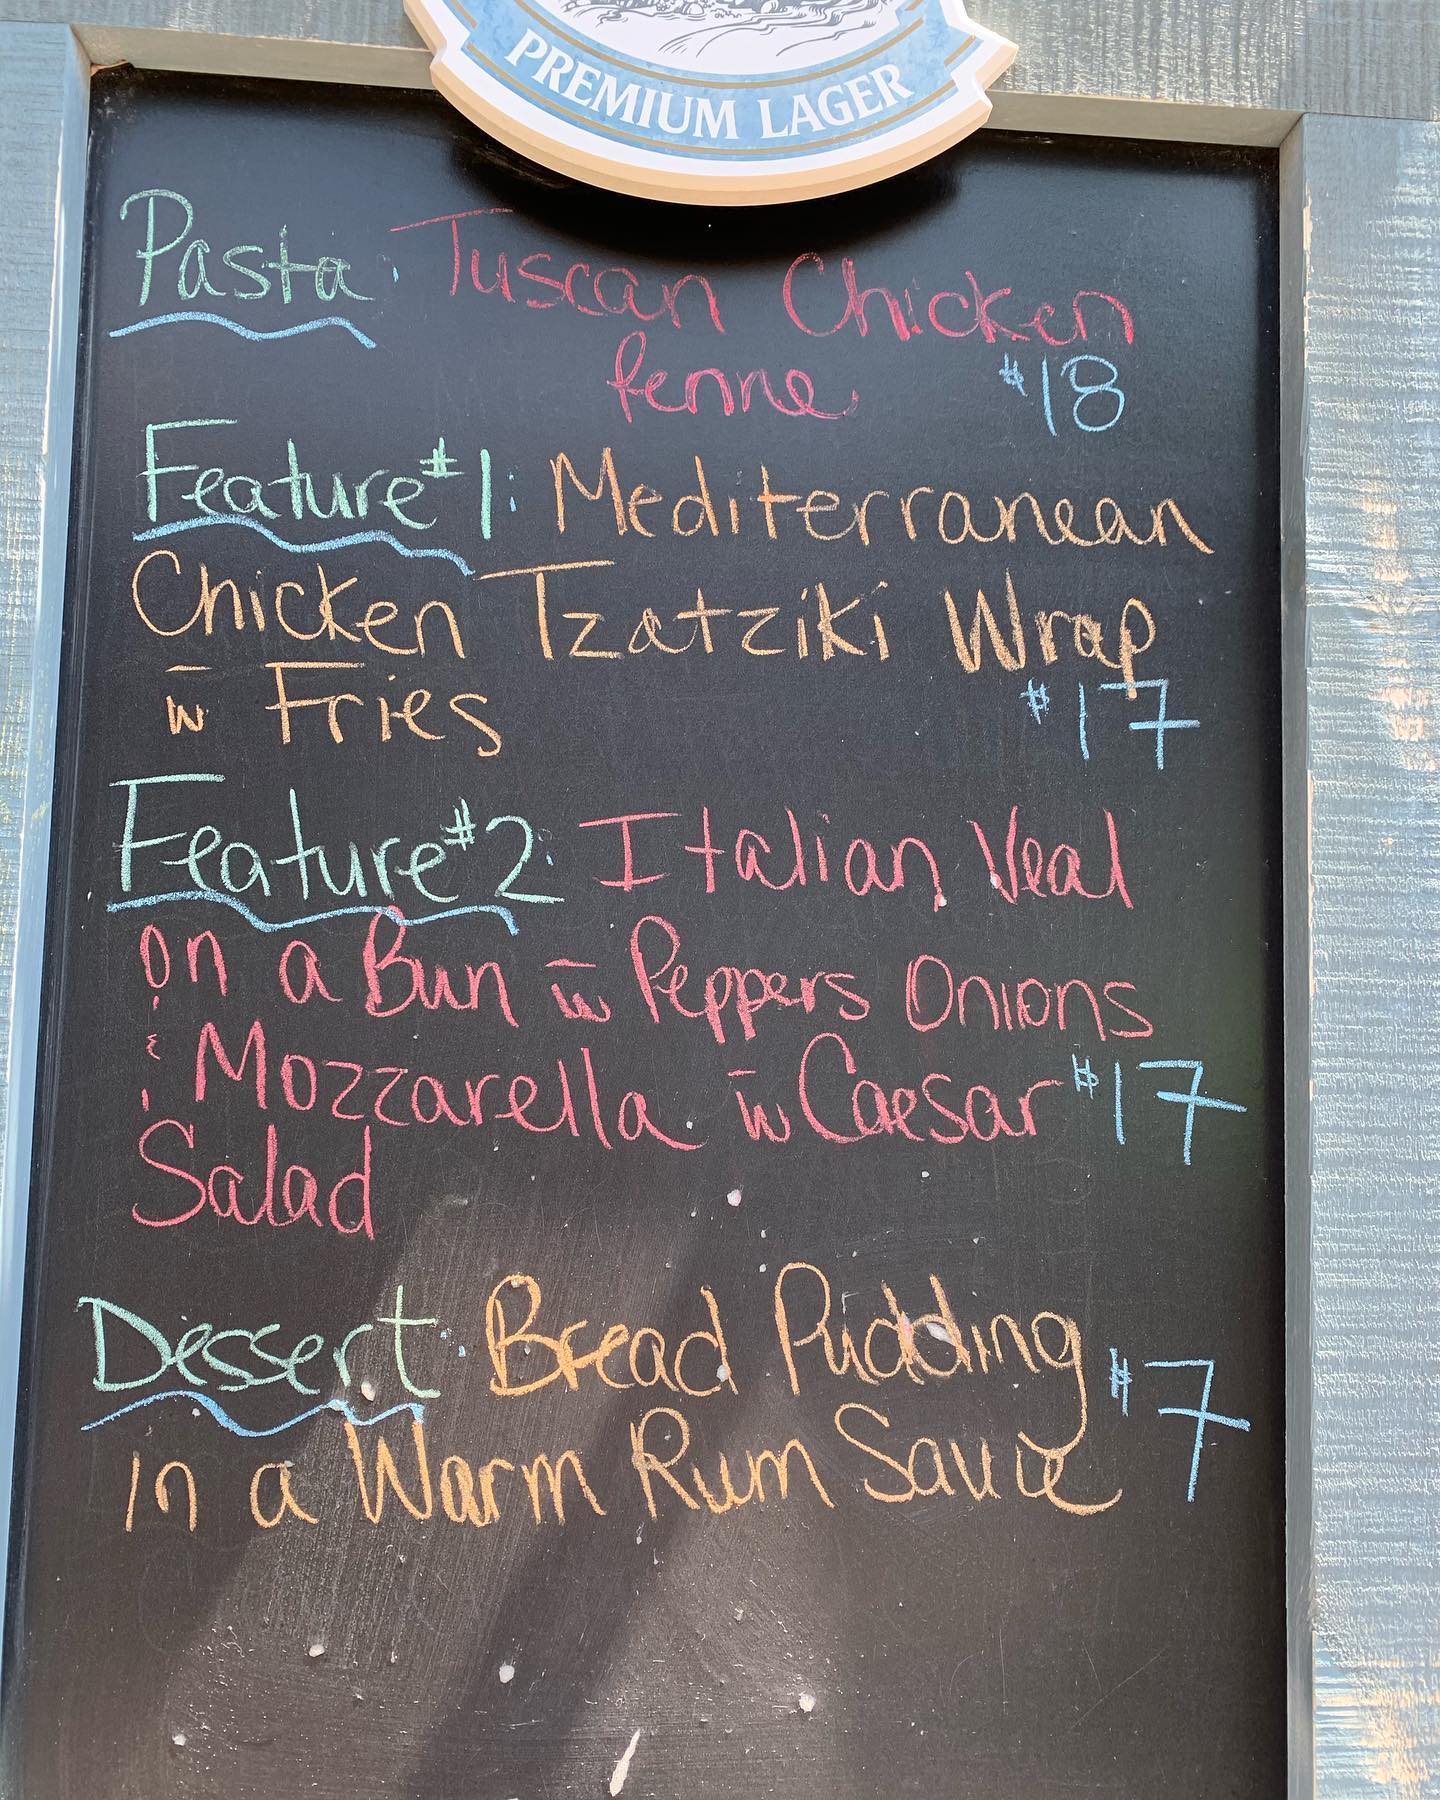 PREMIUM LAGER
Pasta: Tuscan Chicken
Penne $18
Feature #1: Mediterranean
Chicken Tzatziki Wrap
w̄ Fries $17
Feature #2: Italian Veal
on a Bun w̄ Peppers Onions
& Mozzarella w̄ Caesar $17
Salad
Dessert: Bread Pudding $7
in a Warm Rum Sauce